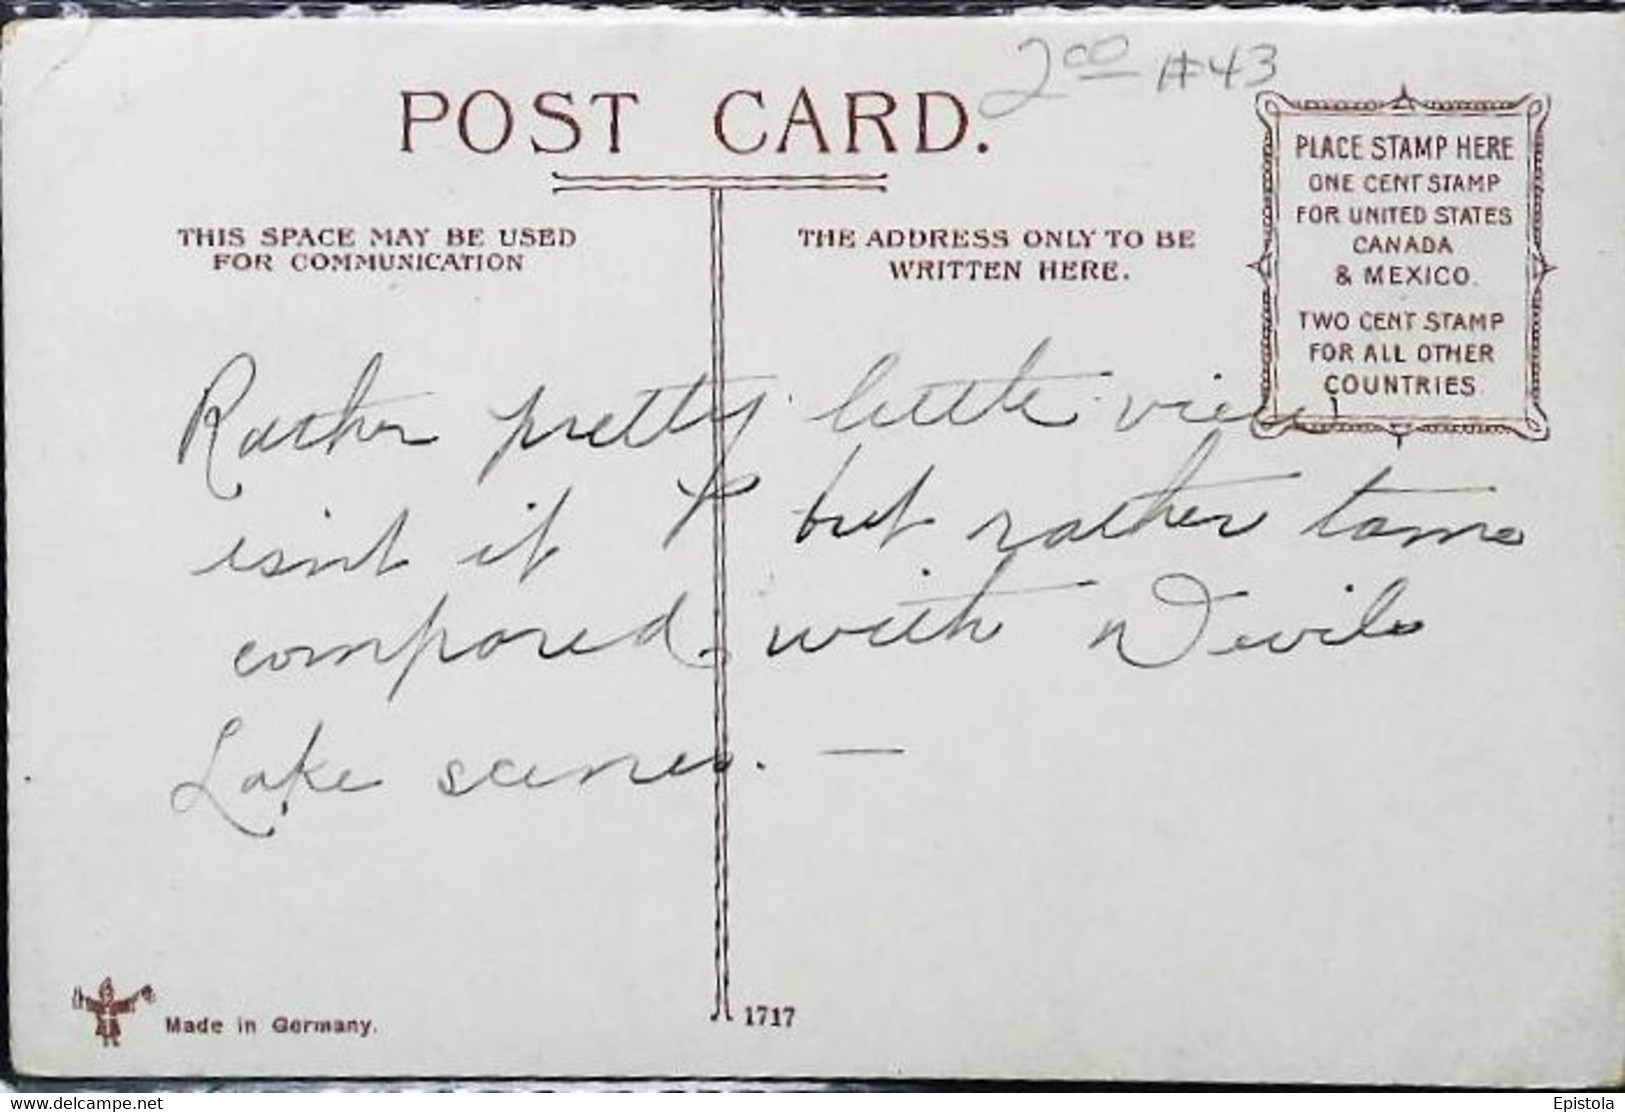 2.00 #43
POST CARD.
THIS SPACE MAY BE USED
FOR COMMUNICATION
THE ADDRESS ONLY TO BE
WRITTEN HERE.
PLACE STAMP HERE
ONE CENT STAMP
FOR UNITED STATES
CANADA
& MEXICO.
TWO CENT STAMP
FOR ALL OTHER
COUNTRIES.
Rather pretty little view
isnt it? but rather tame
compared with Devils
Lake scenes. —
Made in Germany.
1717
www.delcampe.net
Epistola